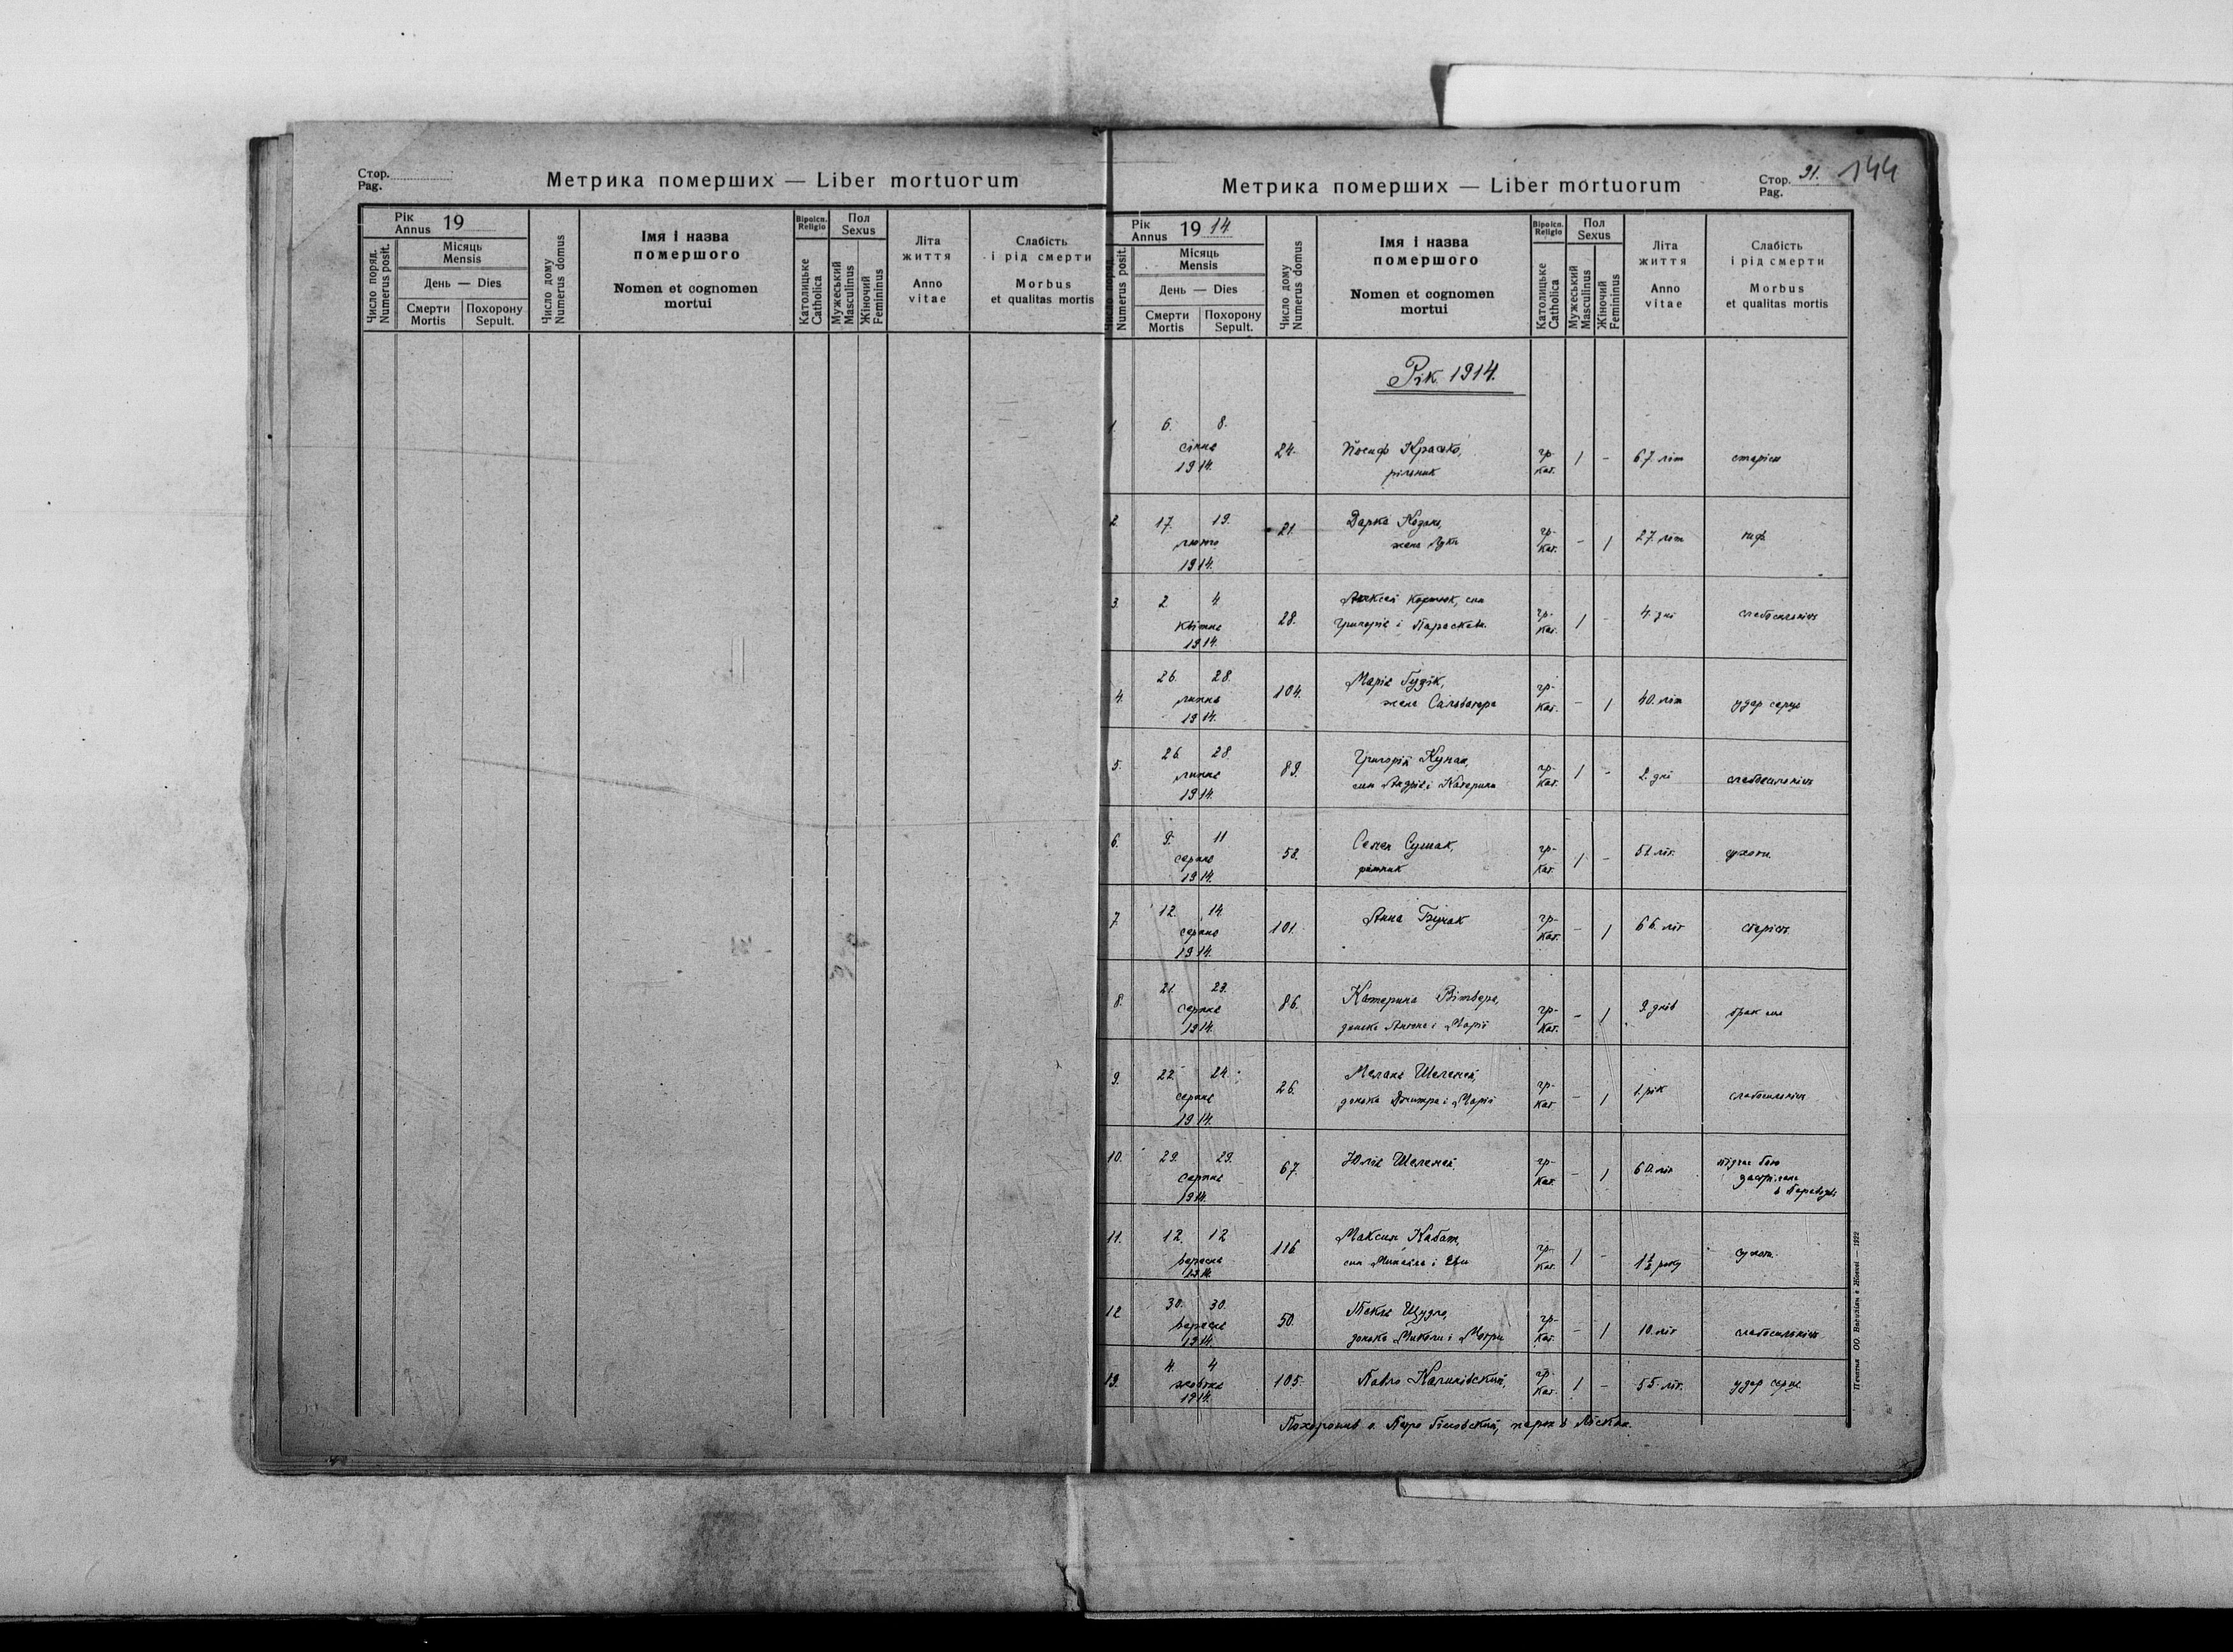 Стор.
Pag.
Метрика померших — Liber mortuorum
Рік
Annus 19
Число поряд.
Numerus posit.
Місяць
Mensis
День — Dies
Смерти
Mortis
Похорону
Sepult.
Число дому
Numerus domus
Імя і назва
помершого
Nomen et cognomen
mortui
Віроісп.
Religio
Католицьке
Catholica
Пол
Sexus
Мужеський
Masculinus
Жіночий
Femininus
Літа
життя
Anno
vitae
Слабість
і рід смерти
Morbus
et qualitas mortis
Метрика померших — Liber mortuorum
Стор. 91. 144
Pag.
Рік
Annus 1914
Число поряд.
Numerus posit.
Місяць
Mensis
День — Dies
Смерти
Mortis
Похорону
Sepult.
Число дому
Numerus domus
Імя і назва
помершого
Nomen et cognomen
mortui
Віроісп.
Religio
Католицьке
Catholica
Пол
Sexus
Мужеський
Masculinus
Жіночий
Femininus
Літа
життя
Anno
vitae
Слабість
і рід смерти
Morbus
et qualitas mortis
Рік 1914.
1. 6. 8.
січня
1914.
24. Йосиф
рільник
гр-
кат. 1 - 67 літ
2 17. 19.
лютого
1914.
21. Дарка
жена Луки
гр-
кат. - 1 27 літ тиф
3. 2 4.
квітня
1914.
28. син
Григорія і Параскеви
гр-
кат. 1 - 4 дні слабосильність
4. 26. 28.
липня
1914.
104. Марія Гудзік,
жена Сильвестра
гр-
кат. - 1 40. літ удар серця
5. 26 28
липня
1914.
89. Григорій
син Андрія і Катерини
гр-
кат. 1 - 2. дні слабосильність
6. 9. 11
серпня
1914.
58. Семен Сушак,
рільник
гр-
кат. 1 - сухоти
7. 12. 14
серпня
1914.
101. Анна
гр-
кат. - 1 66. літ старість
8. 21. 23.
серпня
1914.
86. Катерина Вітвера,
донька Антона і Марії
гр-
кат. - 1 9. днів брак сил
9. 22. 24.
серпня
1914.
26. Меланя Шелемей,
донька Дмитра і Марії
гр-
кат. - 1 1. рік слабосильність
10. 29. 29.
серпня
1914.
67. Юлія Шелемей
гр-
кат. - 1 60. літ підчас бою
застрілена
в
11. 12. 12
вересня
1914.
116 Максим Кабат,
син Михайла і Еви
гр-
кат. 1 - 1½ року сухоти
12 30. 30.
вересня
1914.
50. Текля Щудло,
донька Миколи і
гр-
кат. - 1 10. літ слабосильність
13. 4. 4
жовтня
1914.
105. Павло Калинівский,
гр-
кат. 1 - 55. літ. удар серця
Похоронив о. Петро парох в